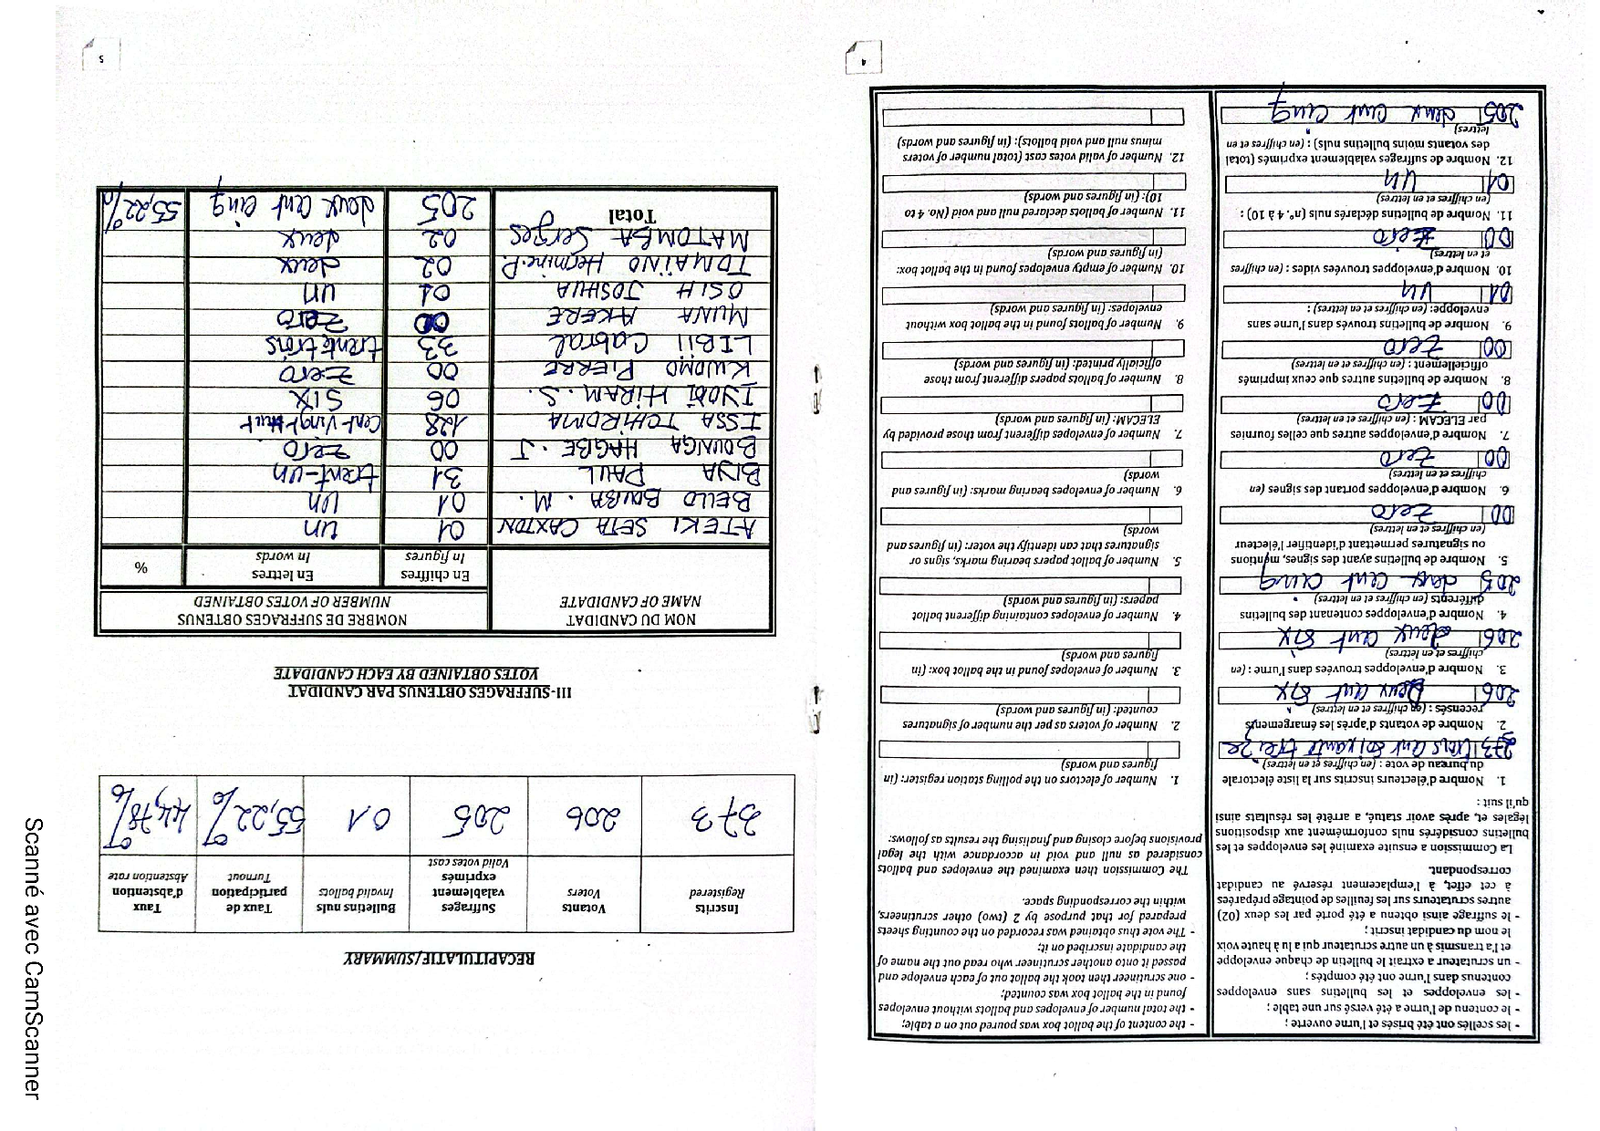 - les scellés ont été brisés et l'urne ouverte ;
- le contenu de l'urne a été versé sur une table ;
- les enveloppes et les bulletins sans enveloppes
contenus dans l'urne ont été comptés ;
- un scrutateur a extrait le bulletin de chaque enveloppe
et l'a transmis à un autre scrutateur qui l'a lu à haute voix
le nom du candidat inscrit ;
- le suffrage ainsi obtenu a été porté par les deux (02)
autres scrutateurs sur les feuilles de pointage préparées
à cet effet, à l'emplacement réservé au candidat
correspondant.
La Commission a ensuite examiné les enveloppes et les
bulletins considérés nuls conformément aux dispositions
légales et, après avoir statué, a arrêté les résultats ainsi
qu'il suit :
1. Nombre d'électeurs inscrits sur la liste électorale
du bureau de vote : (en chiffres et en lettres)
373 trois cent soixante treize
2. Nombre de votants d'après les émargements
recensés : (en chiffres et en lettres)
206 Deux cent six
3. Nombre d'enveloppes trouvées dans l'urne : (en
chiffres et en lettres)
206 deux cent six
4. Nombre d'enveloppes contenant des bulletins
différents (en chiffres et en lettres)
205 deux cent cinq
5. Nombre de bulletins ayant des signes, mentions
ou signatures permettant d'identifier l'électeur
(en chiffres et en lettres)
00 zero
6. Nombre d'enveloppes portant des signes (en
chiffres et en lettres)
00 zero
7. Nombre d'enveloppes autres que celles fournies
par ELECAM : (en chiffres et en lettres)
00 zero
8. Nombre de bulletins autres que ceux imprimés
officiellement : (en chiffres et en lettres)
00 zero
9. Nombre de bulletins trouvés dans l'urne sans
enveloppe: (en chiffres et en lettres) :
01 un
10. Nombre d'enveloppes trouvées vides : (en chiffres
et en lettres)
00 zero
11. Nombre de bulletins déclarés nuls (n°. 4 à 10) :
(en chiffres et en lettres)
01 un
12. Nombre de suffrages valablement exprimés (total
des votants moins bulletins nuls) : (en chiffres et en
lettres)
205 deux cent cinq
- the content of the ballot box was poured out on a table;
- the total number of envelopes and ballots without envelopes
found in the ballot box was counted;
- one scrutineer then took the ballot out of each envelope and
passed it onto another scrutineer who read out the name of
the candidate inscribed on it;
- The vote thus obtained was recorded on the counting sheets
prepared for that purpose by 2 (two) other scrutineers,
within the corresponding space.
The Commission then examined the envelopes and ballots
considered as null and void in accordance with the legal
provisions before closing and finalising the results as follows:
1. Number of electors on the polling station register: (in
figures and words)
2. Number of voters as per the number of signatures
counted: (in figures and words)
3. Number of envelopes found in the ballot box: (in
figures and words)
4. Number of envelopes containing different ballot
papers: (in figures and words)
5. Number of ballot papers bearing marks, signs or
signatures that can identify the voter: (in figures and
words)
6. Number of envelopes bearing marks: (in figures and
words)
7. Number of envelopes different from those provided by
ELECAM: (in figures and words)
8. Number of ballots papers different from those
officially printed: (in figures and words)
9. Number of ballots found in the ballot box without
envelopes: (in figures and words)
10. Number of empty envelopes found in the ballot box:
(in figures and words)
11. Number of ballots declared null and void (No. 4 to
10): (in figures and words)
12. Number of valid votes cast (total number of voters
minus null and void ballots): (in figures and words)
4
RECAPITULATIF/SUMMARY
Inscrits Registered | Votants Voters | Suffrages valablement exprimés Valid votes cast | Bulletins nuls Invalid ballots | Taux de participation Turnout | Taux d'abstention Abstention rate
373 | 206 | 205 | 01 | 55,22% | 44,78%
III-SUFFRAGES OBTENUS PAR CANDIDAT
VOTES OBTAINED BY EACH CANDIDATE
NOM DU CANDIDAT NAME OF CANDIDATE | NOMBRE DE SUFFRAGES OBTENUS NUMBER OF VOTES OBTAINED
En chiffres In figures | En lettres In words | %
ATEKI SETA CAXTON 01 un
BELLO BOUBA . M. 01 un
BIYA PAUL 31 trent-un
BOUNGA HAGBE . J 00 zero
ISSA TCHIROMA 128 Cent-vingt-huit
IYODI HIRAM. S. 06 six
KWOMO PIERRE 00 zero
LIBII Cabral 33 trente trois
MUNA AKERE 00 zero
OSIH JOSHUA 01 un
TOMAINO Hermine.P. 02 deux
MATOMBA Serges 02 deux
Total 205 deux cent cinq 55,22%
5
Scanné avec CamScanner